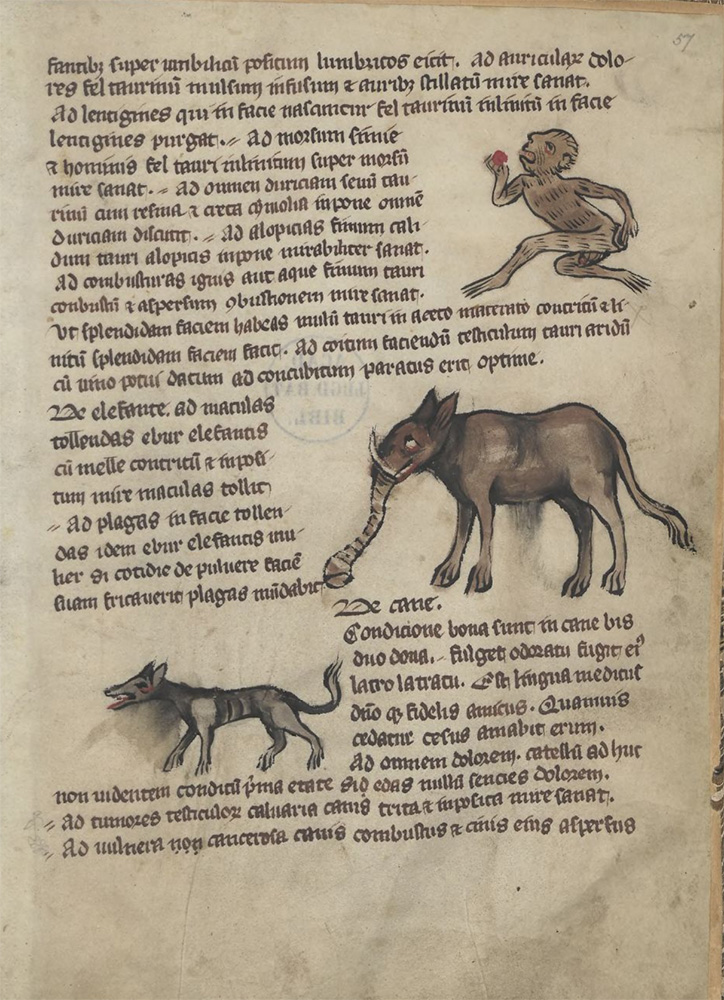 57
fantibꝫ super umbilicū positum lumbricos eicit. Ad auriculaꝝ dolo-
res fel taurinū mulsum infusum ⁊ auribꝫ stillatū mire sanat.
Ad lentigines qui in facie nascuntur fel taurinū inlinitū in facie
lentigines purgat. Ad morsum simie
⁊ hominis fel tauri inlinitum super morsū
mire sanat. Ad omnem duriciam sevū tau-
rinū cum resina ⁊ creta cymolia inpone omnē
duriciam discutit. Ad alopicias fimum cali-
dum tauri alopicis inpone mirabiliter sanat.
Ad combusturas ignis aut aque fimum tauri
conbustū ⁊ aspersum ꝯbustionem mire sanat.
Ut splendidam faciem habeas tauri in aceto macerato contritū ⁊ li-
nitū splendidam faciem facit. Ad coitum faciendū testiculum tauri aridū
cū vino potui datum ad concubitum paratus erit optime.
De elefante. ad maculas
tollendas ebur elefantis
cū melle contritū ⁊ inposi-
tum mire maculas tollit
Ad plagas in facie tollen-
das idem ebur elefantis mu-
lier si cotidie de pulvere faciē
suam fricaverit plagas mūdabit
De cane.
Condicione bona sunt in cane bis
duo dona. fulget odoratu fugit
latro latratu. Est lingua medicus
fidelis amicus. Quamvis
cedatur cesus amabit erum.
Ad omnem dolorem. catellū ad huc
non videntem conditū p̄ma etate edas nullū sencies dolorem.
Ad tumores testiculoꝝ calvaria canis trita ⁊ inposita mire sanat.
Ad vulnera non cancerosa canis combustus ⁊ cinis eius aspersus